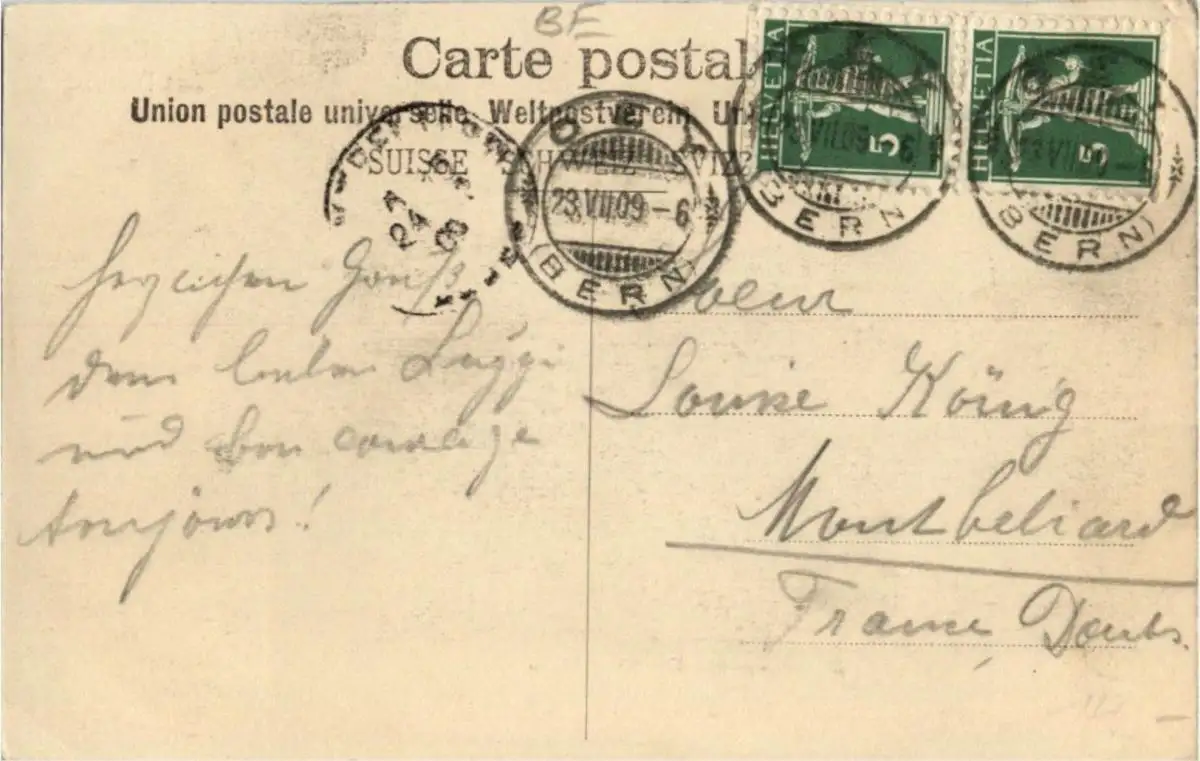 BE
Carte postal
Union postale universelle. Weltpostverein. Un
SUISSE SCHWEIZ SVIZZ
HELVETIA
5
HELVETIA
5
24
09
23.VII.09-6
BERN
BERN
BERN
Herzlichen Gruss
dem lieben
und bon courage
toujours!
Soeur
Louise König
Montbeliard
France, Doubs.